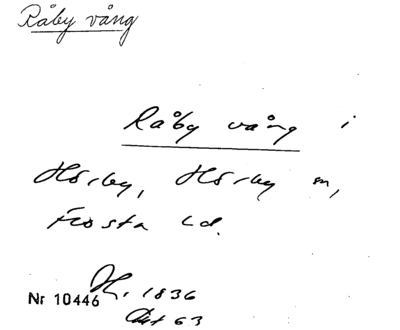 Råby vång
Råby vång i
Hörby, Hörby sn,
Frosta hd.
H. 1836
Nr 10446
Akt 63